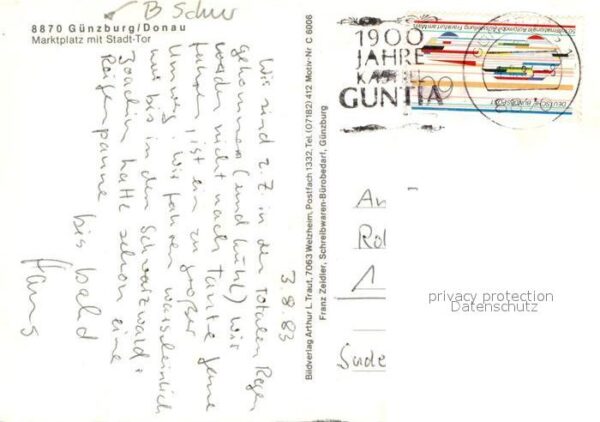 B Schur
8870 Günzburg/Donau
Marktplatz mit Stadt-Tor
3.9.83
Wir sind z.Z. in den Totalen Regen
gekommen (und kühl) wir
werden nicht nach Tante Jene
fahren, ist ein zu großer
Umweg. Wir fahren warscheinlich
nur bis in den Schwarzwald.
Joachim hatte schon eine
Reifenpanne
bis bald
Hans
Bildverlag Arthur L. Traut, 7063 Welzheim, Postfach 1332, Tel. (07182) 412 Motiv-Nr C 6006
Franz Zeidler, Schreibwaren-Bürobedarf, Günzburg
1900
JAHRE
KASTELL
GUNTIA
DEUTSCHE BUNDESPOST
An
Rol
1
Sude
privacy protection
Datenschutz